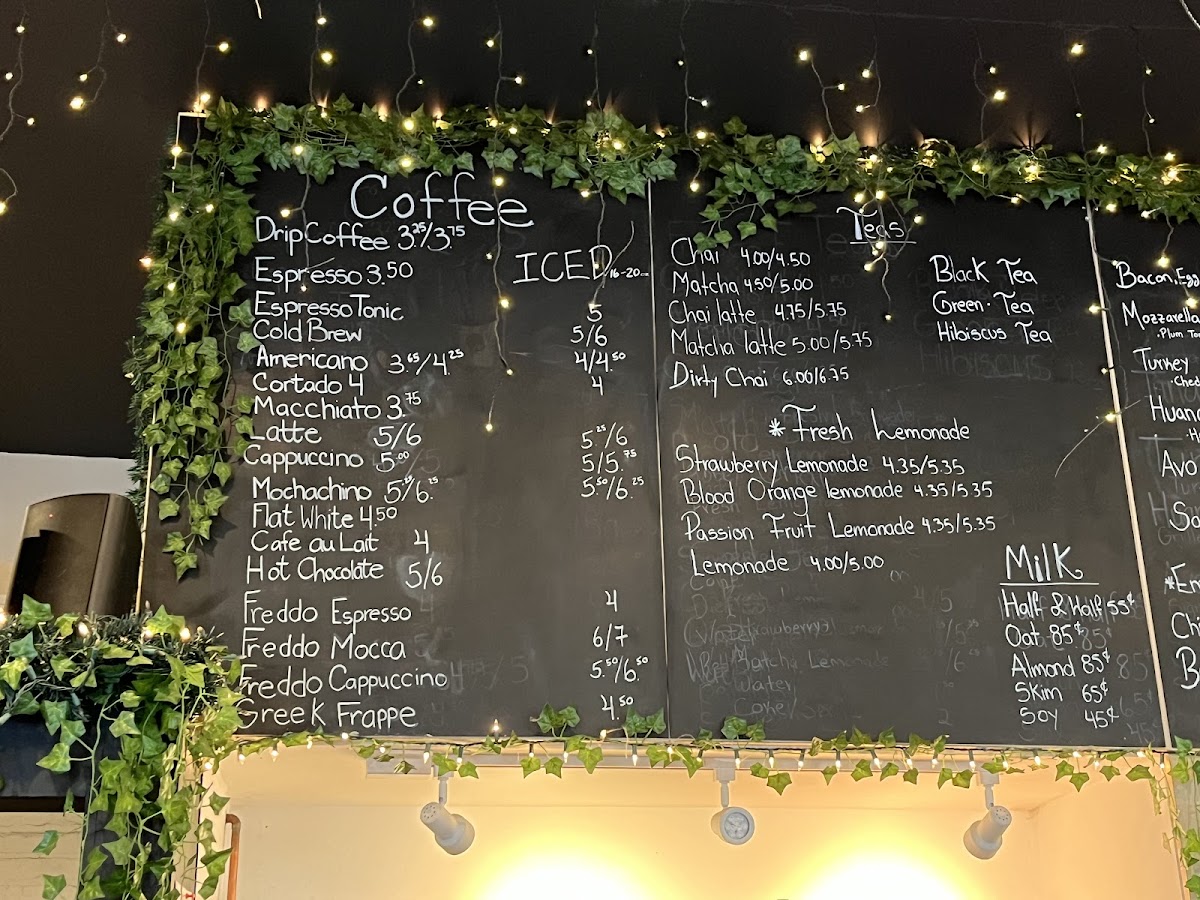 Coffee
Drip Coffee 3.25/3.75
ICED 16-20
Espresso 3.50
Espresso Tonic 5
Cold Brew 5/6
Americano 3.65/4.25 4/4.50
Cortado 4 4
Macchiato 3.75
Latte 5/6 5.25/6
Cappuccino 5.00 5/5.75
Mochachino 5.25/6.25 5.50/6.25
Flat White 4.50
Cafe au Lait 4
Hot Chocolate 5/6
Freddo Espresso 4
Freddo Mocca 6/7
Freddo Cappuccino 5.50/6.50
Greek Frappe 4.50
Teas
Chai 4.00/4.50
Matcha 4.50/5.00
Chai latte 4.75/5.75
Matcha latte 5.00/5.75
Dirty Chai 6.00/6.75
Black Tea
Green Tea
Hibiscus Tea
*Fresh Lemonade
Strawberry Lemonade 4.35/5.35
Blood Orange lemonade 4.35/5.35
Passion Fruit Lemonade 4.35/5.35
Lemonade 4.00/5.00
Milk
Half & Half 55¢
Oat 85¢
Almond 85¢
Skim 65¢
Soy 45¢
Bacon, Egg
Mozzarella
Plum
Turkey